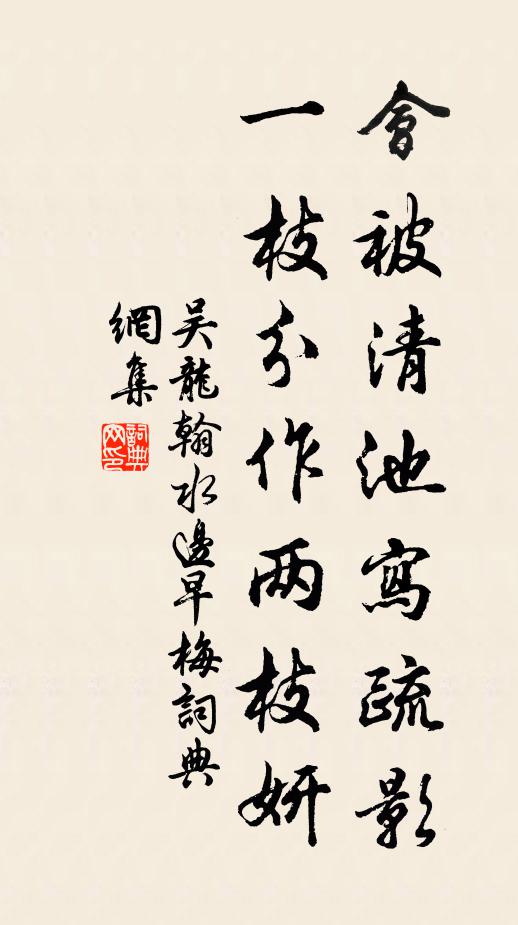 會被清池寫疏影
一枝分作两枝妍
吴龍翰水邊早梅詞典
網集
詞典
网印